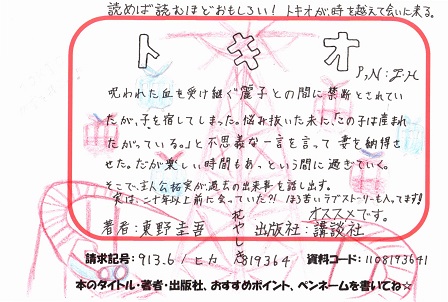 読めば読むほどおもしろい! トキオが、時を越えて会いに来る。
トキオ
P,N:I.H
呪われた血を受け継ぐ麗子との間に禁断とされてい
たが、子を宿してしまった。悩み抜いた末に、「この子は産まれ
たがっている。」と不思議な一言を言って妻を納得さ
せた。だが楽しい時間もあっという間に過ぎていく。
そこで、主人公拓実が過去の出来事を話し出す。
実は二十年以上前に会っていた?! ほろ苦いラブストーリーも入ってます!
オススメです。
花やしき
著者:東野圭吾 出版社:講談社
請求記号:913.6/ヒカ 819364 資料コード:1108193641
本のタイトル・著者・出版社、おすすめポイント、ペンネームを書いてね☆